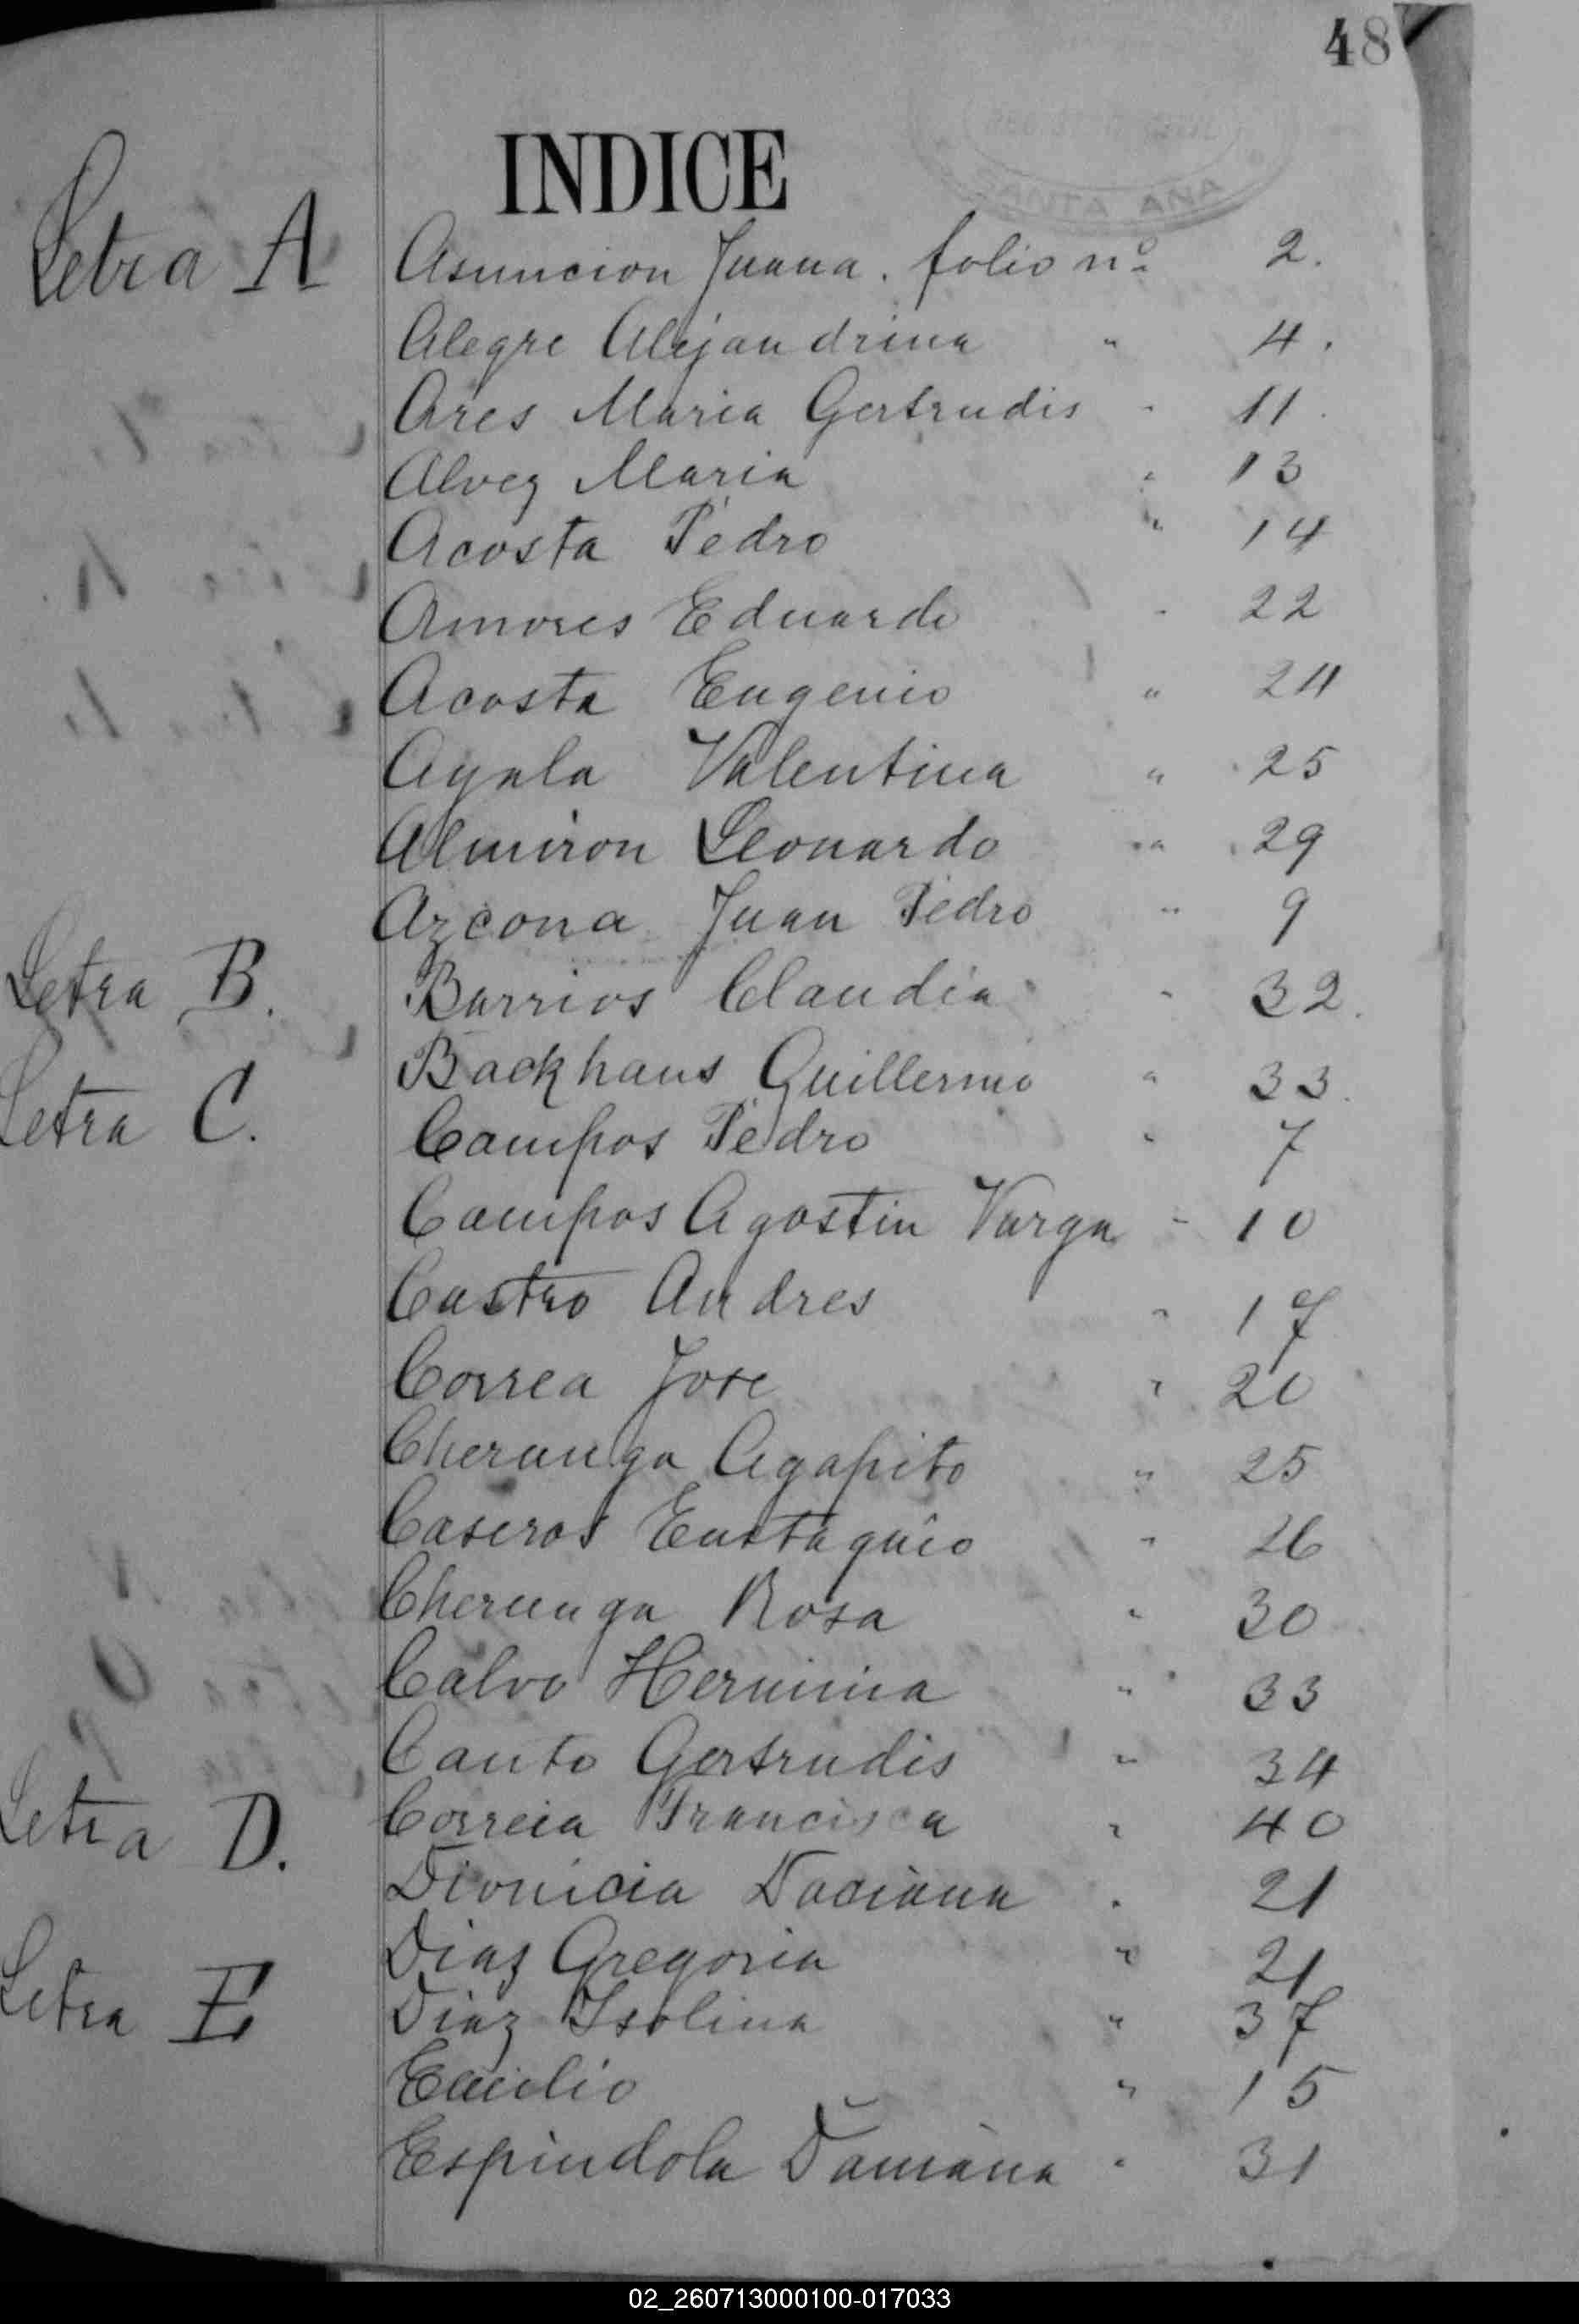 48
INDICE
SANTA ANA
Letra A Asuncion Juana. folio nº 2.
Alegre Alejandrina " 4.
Ares Maria Gertrudis " 11.
Alvez Maria " 13
Acosta Pedro " 14
Amores Eduardo " 22
Acosta Eugenio " 24
Ayala Valentina " 25
Almiron Leonardo " 29
Azcona Juan Pedro " 9
Letra B. Barrios Claudia " 32.
Backhaus Guillermo " 33.
Letra C. Campos Pedro " 7
Campos Agostin Varga " 10
Castro Andres " 17
Correa Jose " 20
Cherunga Agapito " 25
Caseros Eustaquio " 26
Cherunga Rosa " 30
Calvo Herminia " 33
Canto Gertrudis " 34
Correia Francisca " 40
Letra D. Dionicia Daciana " 21
Diaz Gregoria " 21
Diaz Isolina " 37
Letra E Emilio " 15
Espindola Damiana " 31
02_260713000100-017033